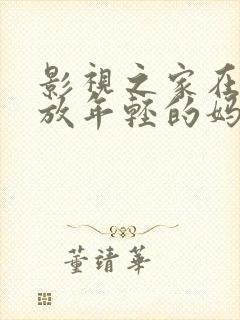 影視之家在
放年輕的媽
董靖華